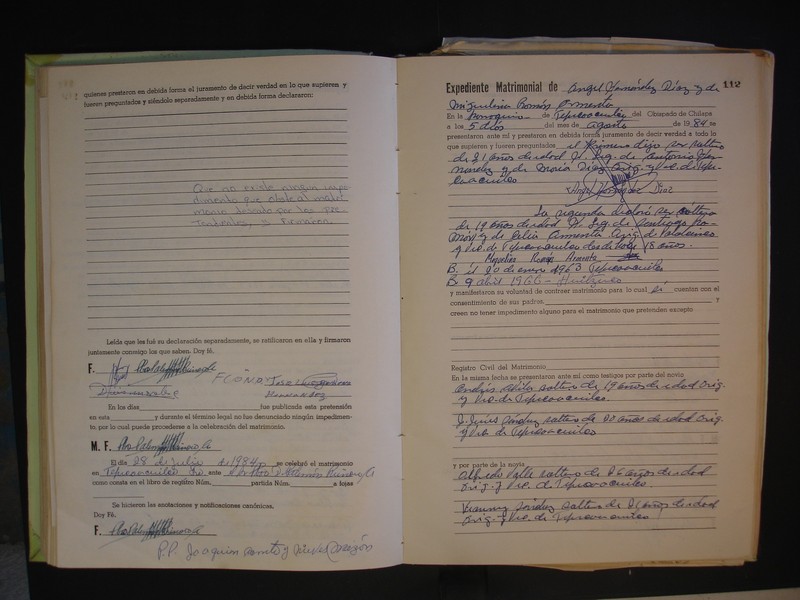 quienes prestaron en debida forma el juramento de decir verdad en lo que supieren y
fueren preguntados y siéndolo separadamente y en debida forma declararon:
Que no existe ningun impe-
dimento que obste al matri-
monio deseado por los pre-
tendientes, y firmaron
Leída que les fué su declaración separadamente, se ratificaron en ella y firmaron
juntamente conmigo los que saben. Doy fé.
F.
En los días fue publicada esta pretensión
en esta y durante el término legal no fue denunciado ningún impedimen-
to, por lo cual puede procederse a la celebración del matrimonio.
M. F.
El día 28 de julio de 1984 se celebró el matrimonio
en Tepecoacuilco Gro. ante
como consta en el libro de registro Núm. partida Núm. a fojas
Se hicieron las anotaciones y notificaciones canónicas.
Doy Fé.
F.
P.P. Joaquin
Expediente Matrimonial de Angel Hernández Díaz y de 112
Miguelina Román Armenta
En la Parroquia de Tepecoacuilco del Obispado de Chilapa
a los 5 días del mes de agosto de 1984 se
presentaron ante mí y prestaron en debida forma juramento de decir verdad a todo lo
que supieren y fueren preguntados el primero dijo ser soltero
de 21 años de edad H. leg. de Antonio Her-
nández y de María Díaz Orig. y Vec. de Tepe-
coacuilco
Angel Hernández Diaz
La segunda declaró ser soltera
de 19 años de edad H. leg. de Santiago Ro-
mán y de Celia Armenta Orig. de
y Vec. de Tepecoacuilco desde hace 18 años.
Román Armenta
B. el 20 de enero 1963 Tepecoacuilco
B. 9 abril 1966 - Huitzuco
y manifestaron su voluntad de contraer matrimonio para lo cual sí cuentan con el
consentimiento de sus padres, y
creen no tener impedimento alguno para el matrimonio que pretenden excepto
Registro Civil del Matrimonio
En la misma fecha se presentaron ante mí como testigos por parte del novio
Andrés soltero de 19 años de edad Orig.
y Vec. de Tepecoacuilco.
J. Jesús soltero de 20 años de edad Orig.
y Vec. de Tepecoacuilco
y por parte de la novia
Alfredo Valle soltero de 26 años de edad
Orig. y Vec. de Tepecoacuilco.
soltero de 21 años de edad
Orig. y Vec. de Tepecoacuilco.